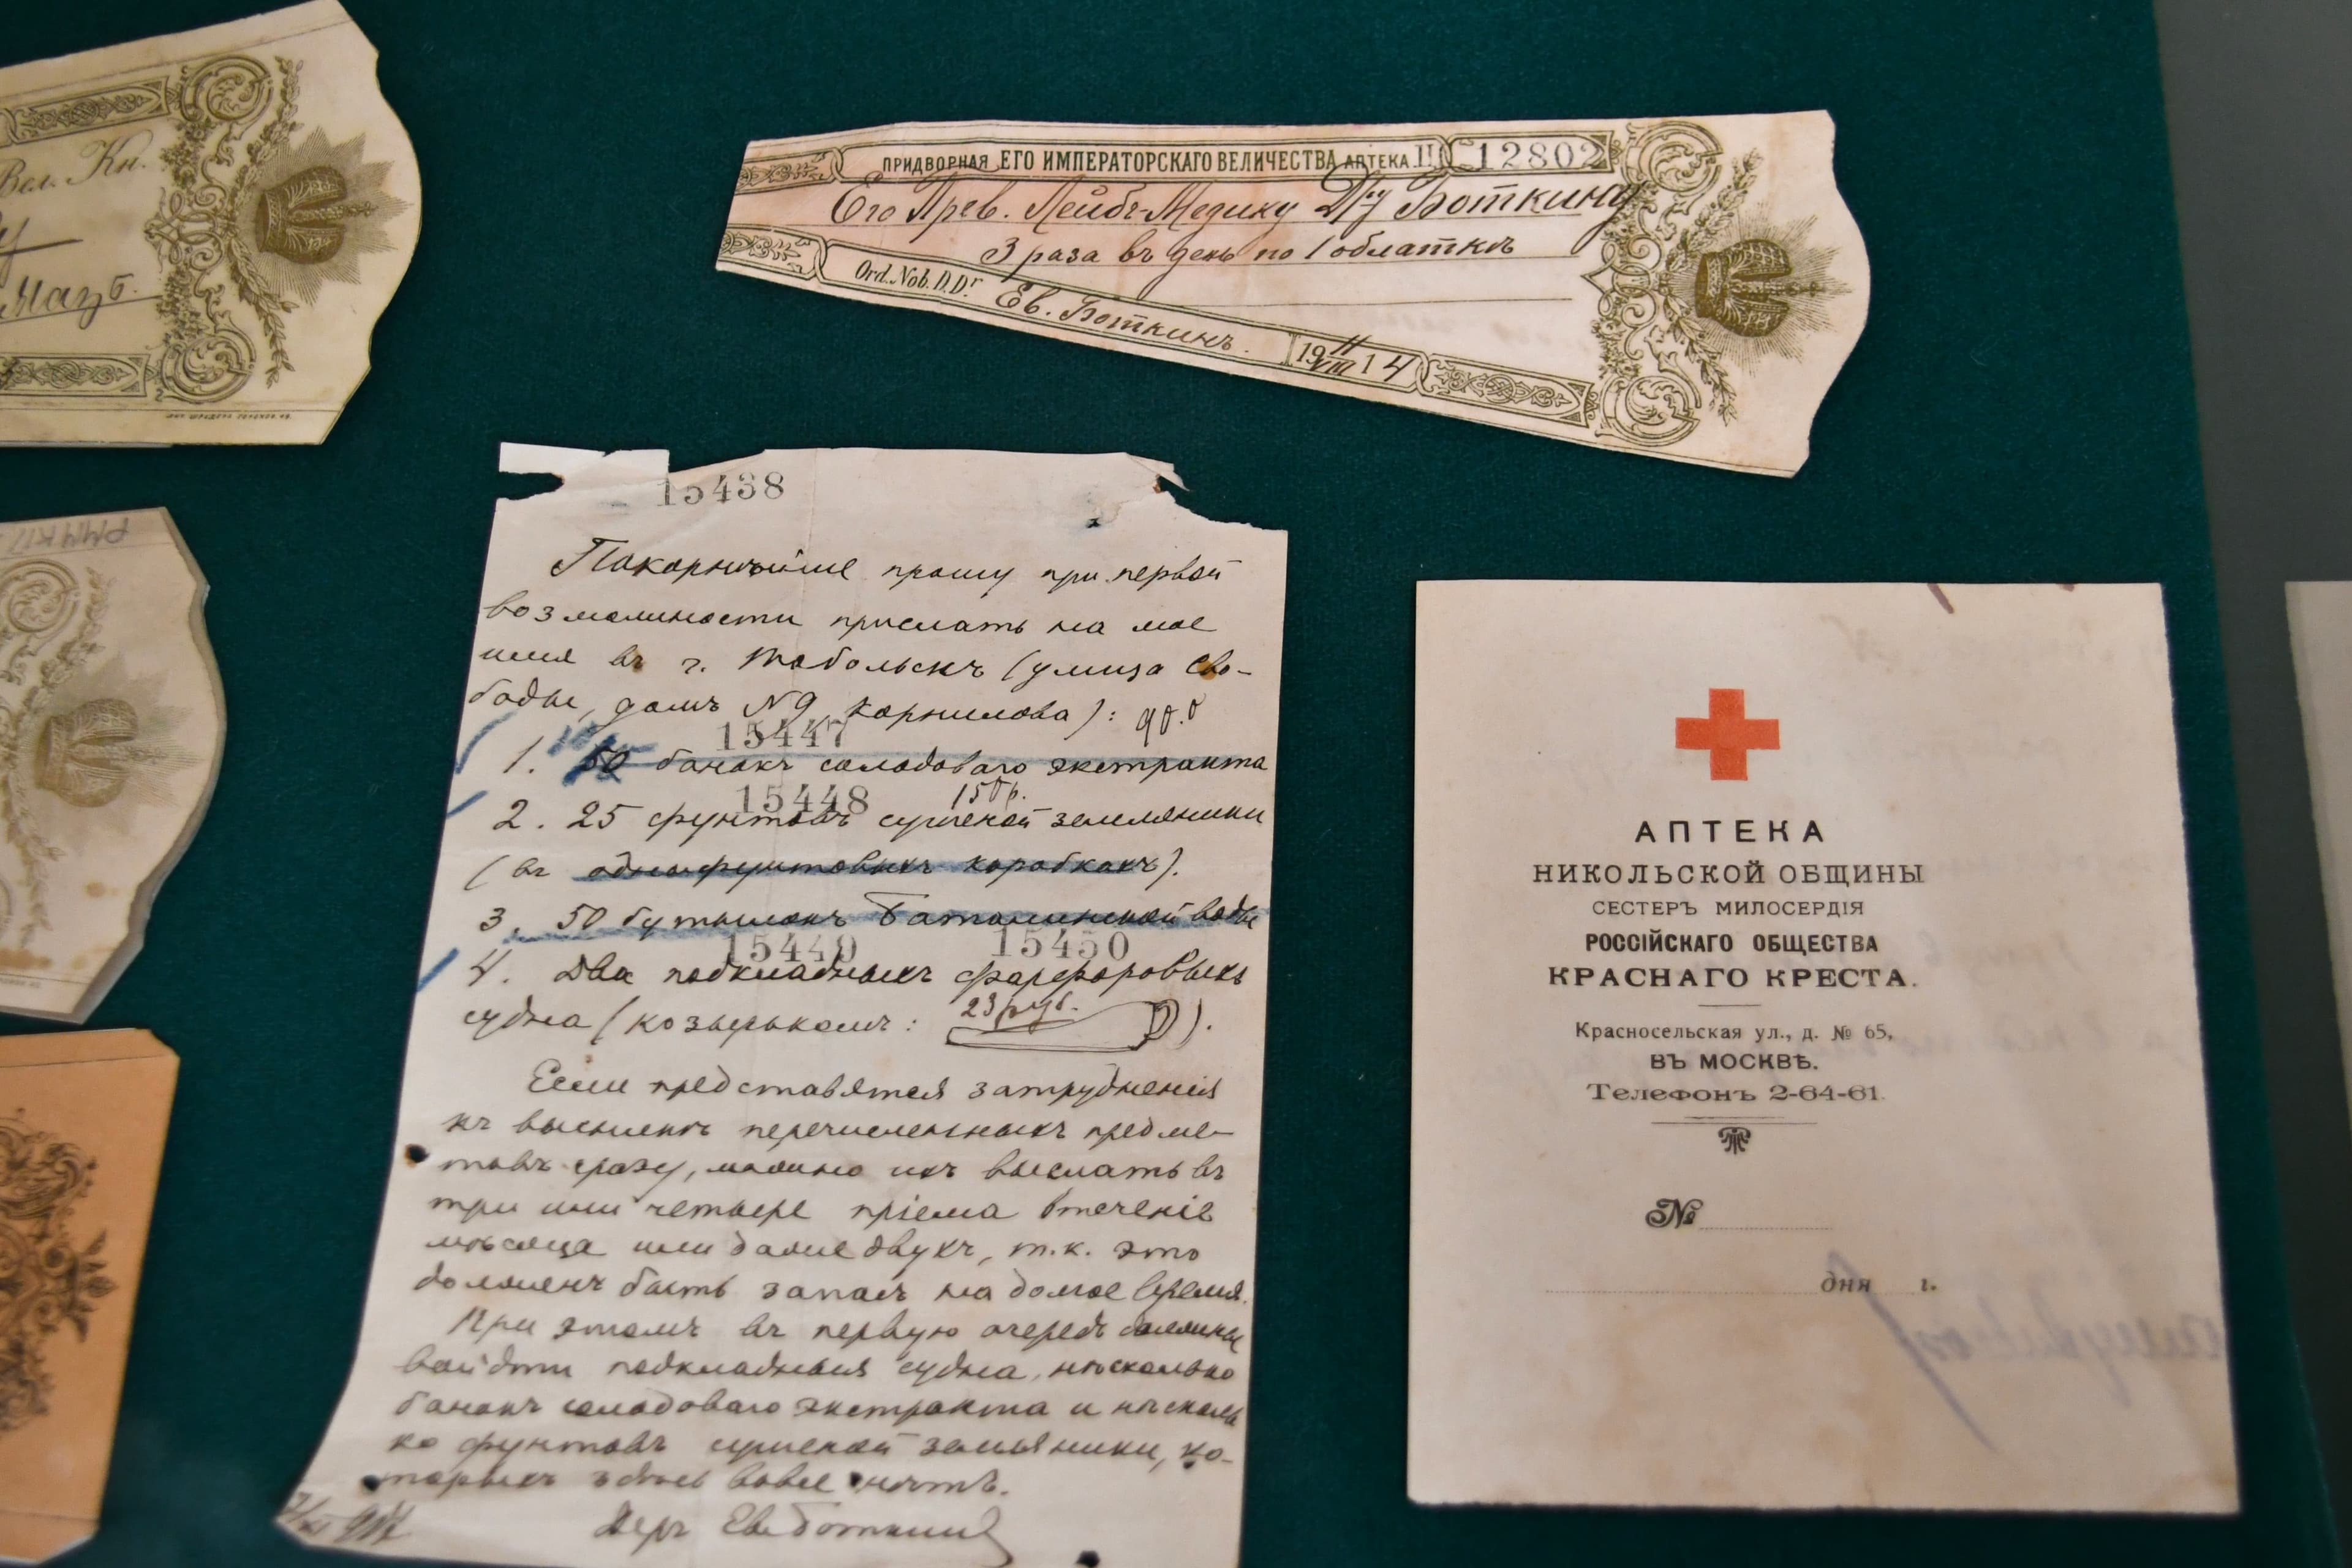 Вел. Кн.
Мазб.
ПРИДВОРНАЯ ЕГО ИМПЕРАТОРСКАГО ВЕЛИЧЕСТВА АПТЕКА III 12802
Его Прев. Лейбъ-Медику Д-ру Боткину
3 раза въ день по 1 облаткѣ
Ord. Nob. D. Dr. Ев. Боткинъ.
19 11/VIII 14
15438
Покорнѣйше прошу при первой
возможности прислать на мое
имя въ г. Тобольскъ (улица Сво-
боды, домъ №9, Корнилова):
15447
1. 50 банокъ солодоваго экстракта
15448 150 р.
2. 25 фунтовъ сушеной земляники
(въ однофунтовыхъ коробкахъ).
3. 50 бутылокъ Баталинской воды
15449 15450
4. Два подкладныхъ фарфоровыхъ
судна (козырькомъ: ).
23 руб.
Если представятся затрудненія
къ высылкѣ перечисленныхъ предме-
товъ сразу, можно ихъ выслать въ
три или четыре пріема втеченіе
мѣсяца или даже двухъ, т.к. это
долженъ быть запасъ на долгое время.
При этомъ въ первую очередь должны
войдти подкладныя судна, нѣсколько
банокъ солодоваго экстракта и нѣсколь
ко фунтовъ сушеной земляники, ко-
торыхъ здѣсь вовсе нѣтъ.
Ев. Боткинъ
АПТЕКА
НИКОЛЬСКОЙ ОБЩИНЫ
СЕСТЕРЪ МИЛОСЕРДІЯ
РОССІЙСКАГО ОБЩЕСТВА
КРАСНАГО КРЕСТА.
Красносельская ул., д. № 65,
ВЪ МОСКВѢ.
Телефонъ 2-64-61.
№
дня г.